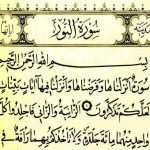 سورة النور
بسم الله الرحمن الرحيم
سورة أنزلناها وفرضناها وأنزلنا فيها آيات بينات
لعلكم تذكرون الزانية والزاني فاجلدوا كل
واحد منهما مائة جلدة ولا تأخذكم بهما رأفة في